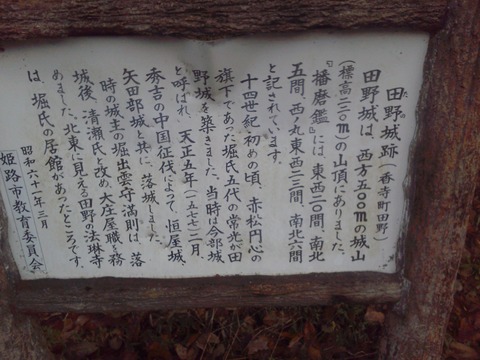 田野城跡(香寺町田野)
た の
田野城は、西方五〇〇mの城山
(標高二二〇m)の山頂にありました。
『播磨鑑』には、東西二〇間、南北
五間、西ノ丸東西二三間、南北六間
と記されています。
十四世紀初めの頃、赤松円心の
旗下であった堀氏五代の常光が田
野城を築きました。当時は今部城
と呼ばれ、天正五年(一五七七)二月、
秀吉の中国征伐によって、恒屋城、
矢田部城と共に、落城しました。
時の城主の堀出雲守満則は、落
城後、清瀬氏と改め、大庄屋職を務
めました。北東に見える田野の法琳寺
は、堀氏の居館があったところです。
昭和六十一年三月
姫路市教育委員会